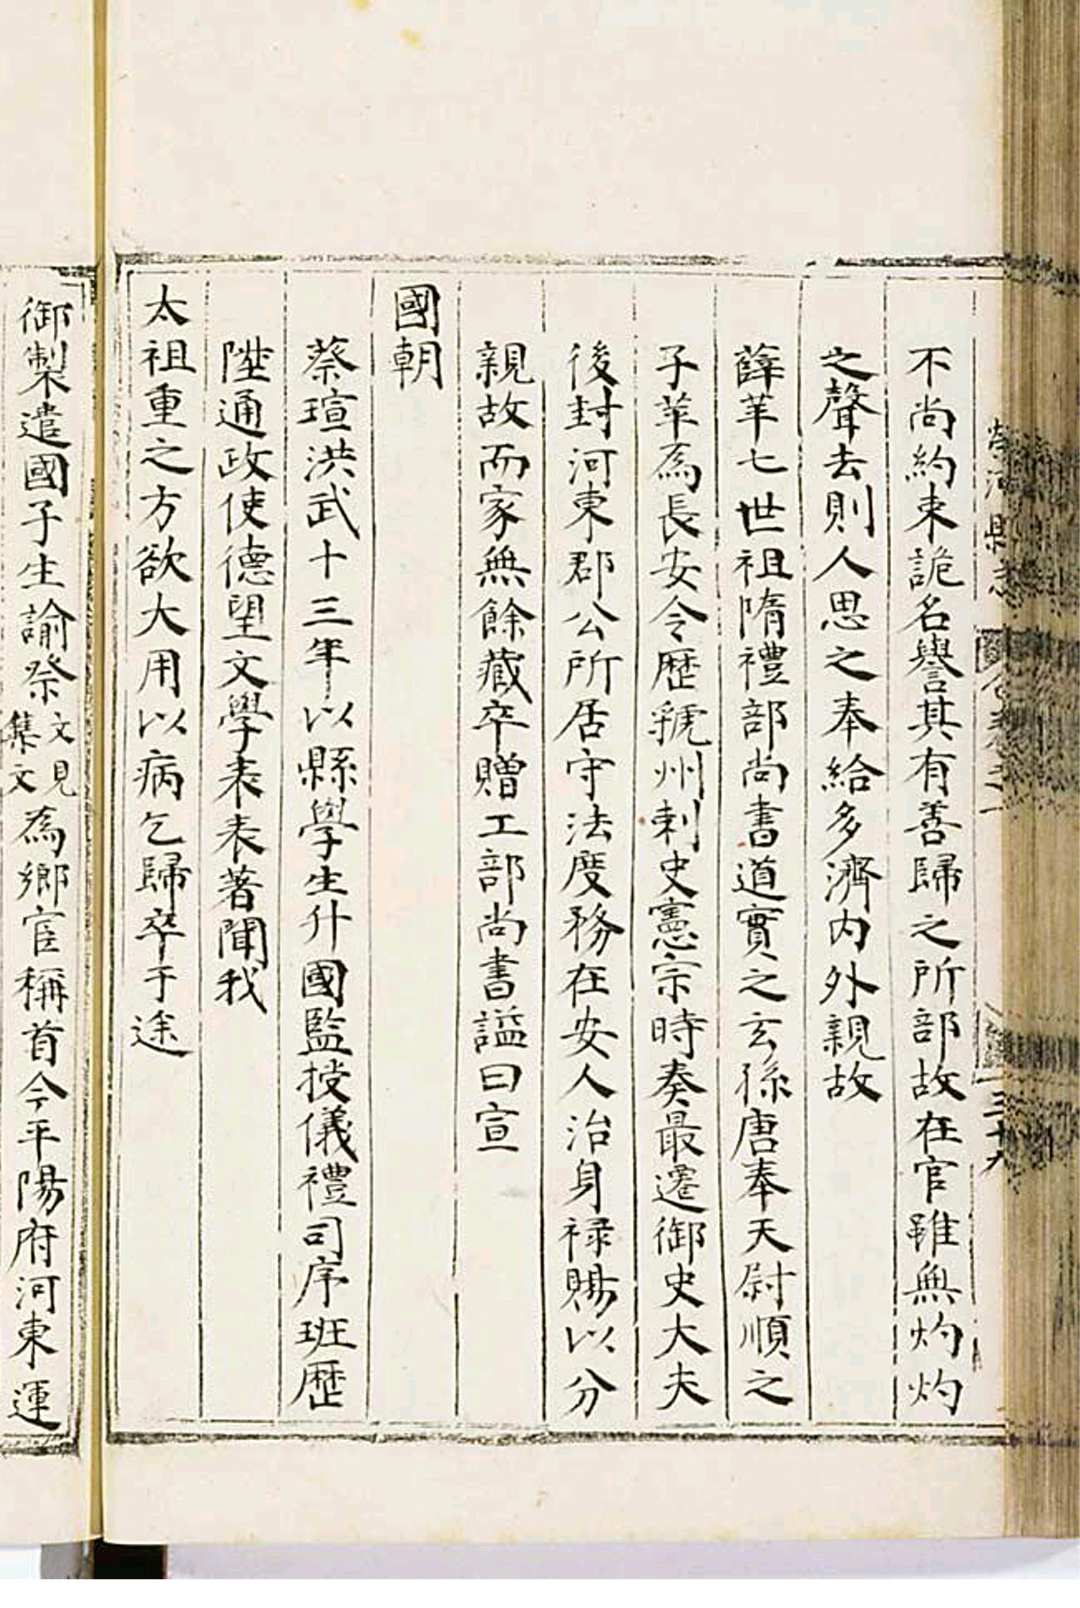 不尚約束詭名譽其有善歸之所部故在官雖無灼灼
之聲去則人思之奉給多濟内外親故
薛苹七世祖隋禮部尚書道實之玄孫唐奉天尉順之
子苹爲長安令歷虢州刺史憲宗時奏最遷御史大夫
後封河東郡公所居守法度務在安人治身禄賜以分
親故而家無餘藏卒贈工部尚書謚曰宣
國朝
蔡瑄洪武十三年以縣學生升國監授儀禮司序班歷
陞通政使德望文學表表著聞我
太祖重之方欲大用以病乞歸卒于途
御製遣國子生諭祭文見文集爲鄉宦稱首今平陽府河東運
河縣志
三十九